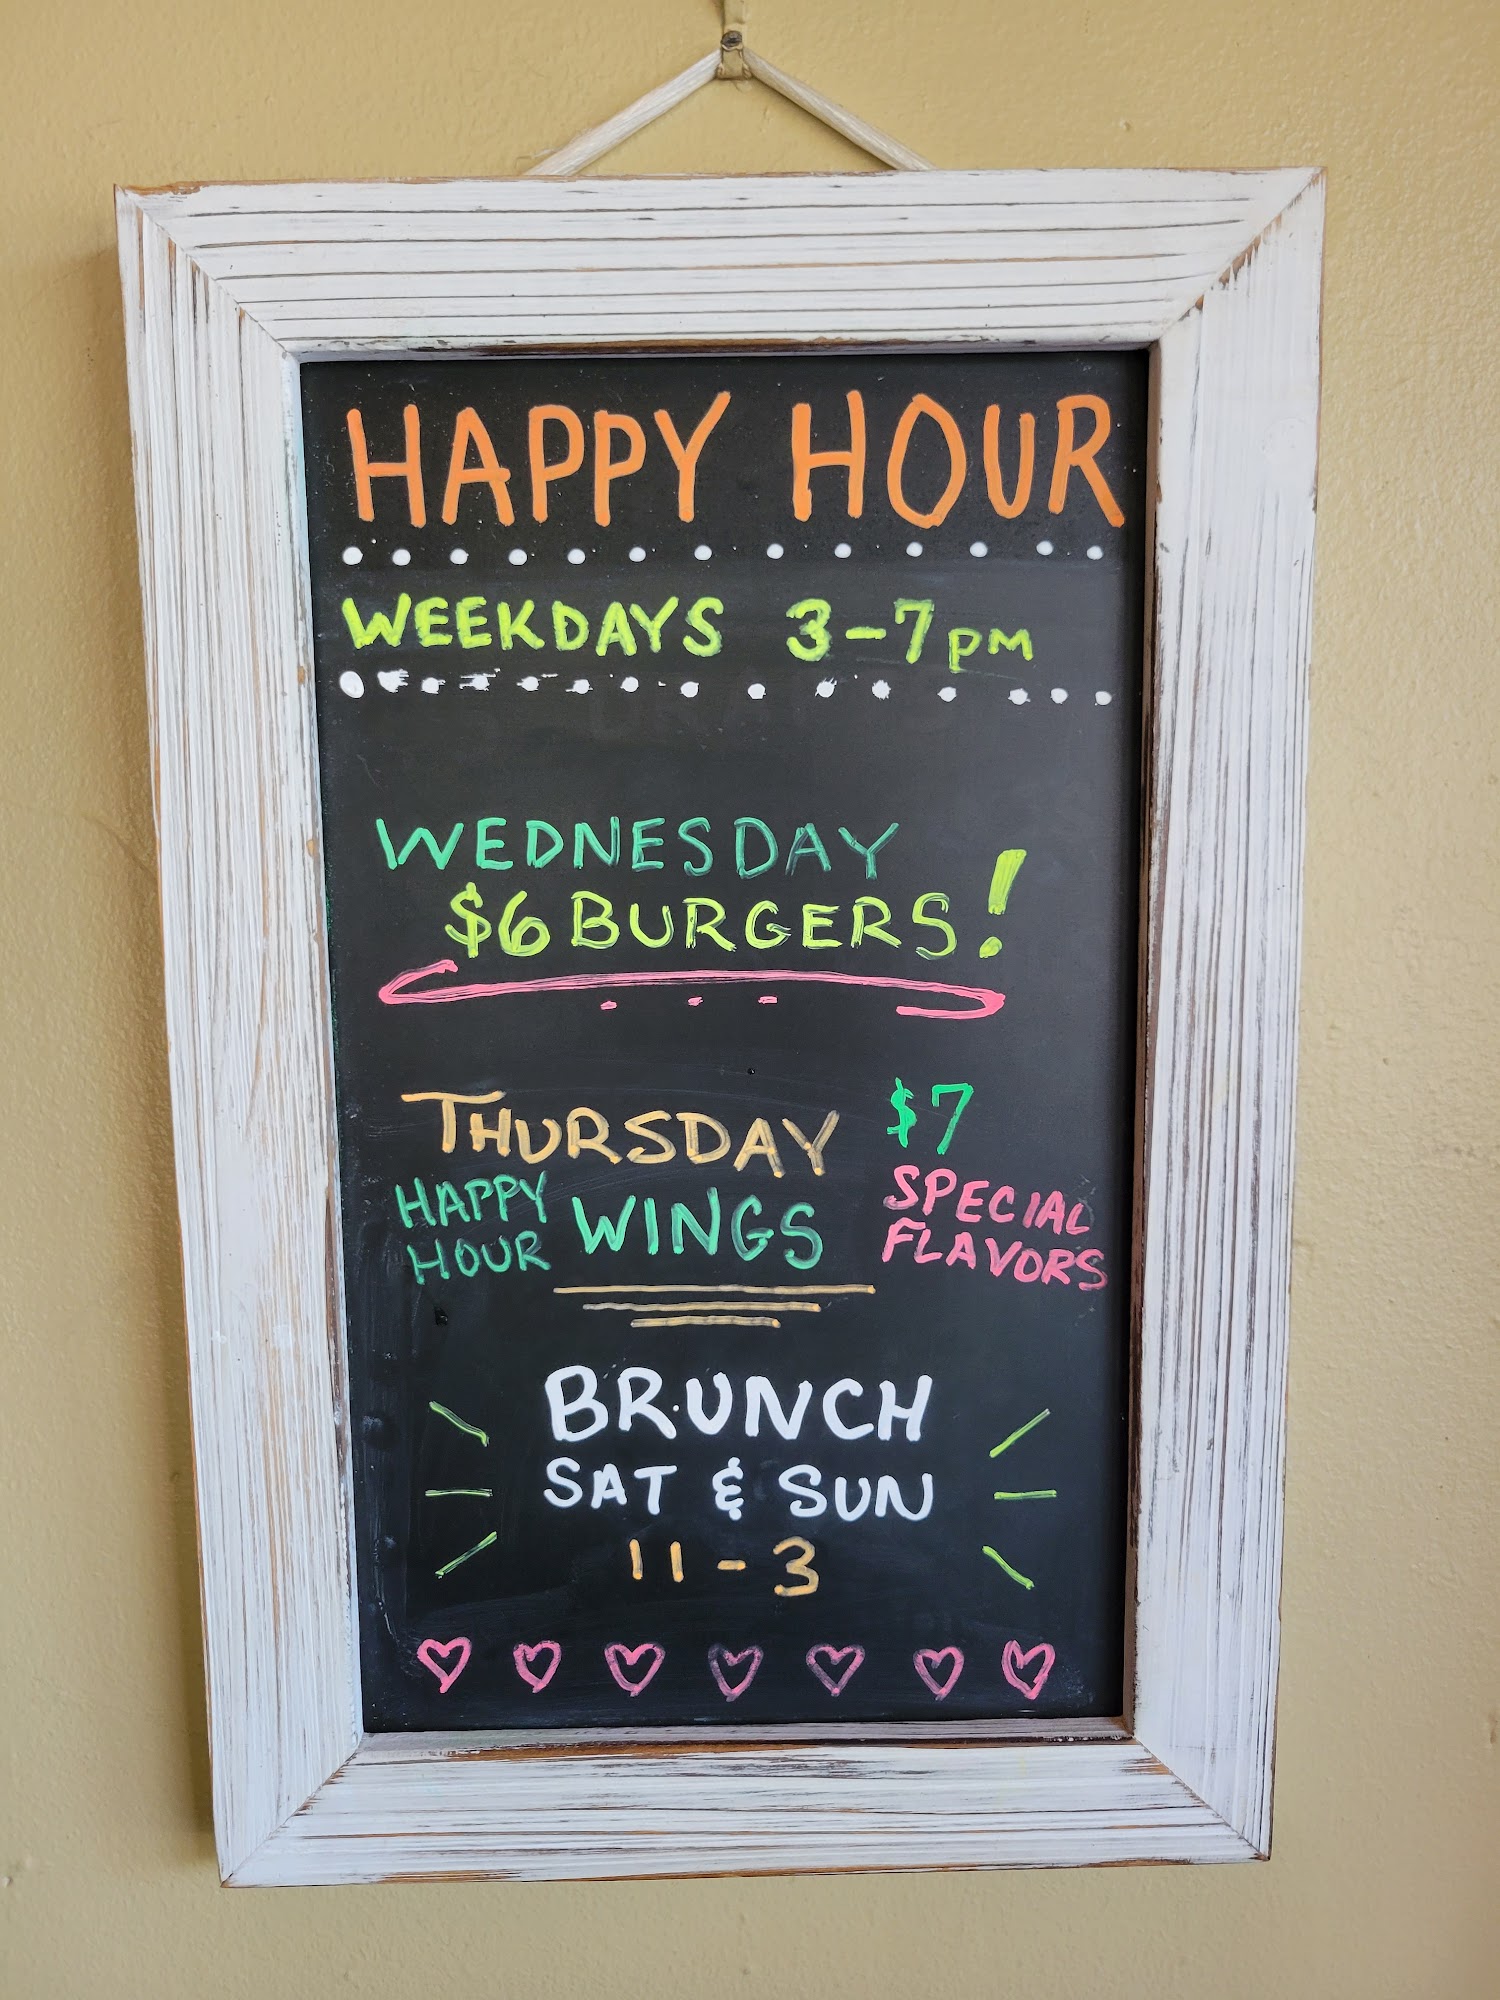 HAPPY HOUR
WEEKDAYS 3-7PM
WEDNESDAY
$6 BURGERS!
THURSDAY $7
HAPPY HOUR WINGS SPECIAL FLAVORS
BRUNCH
SAT & SUN
11-3